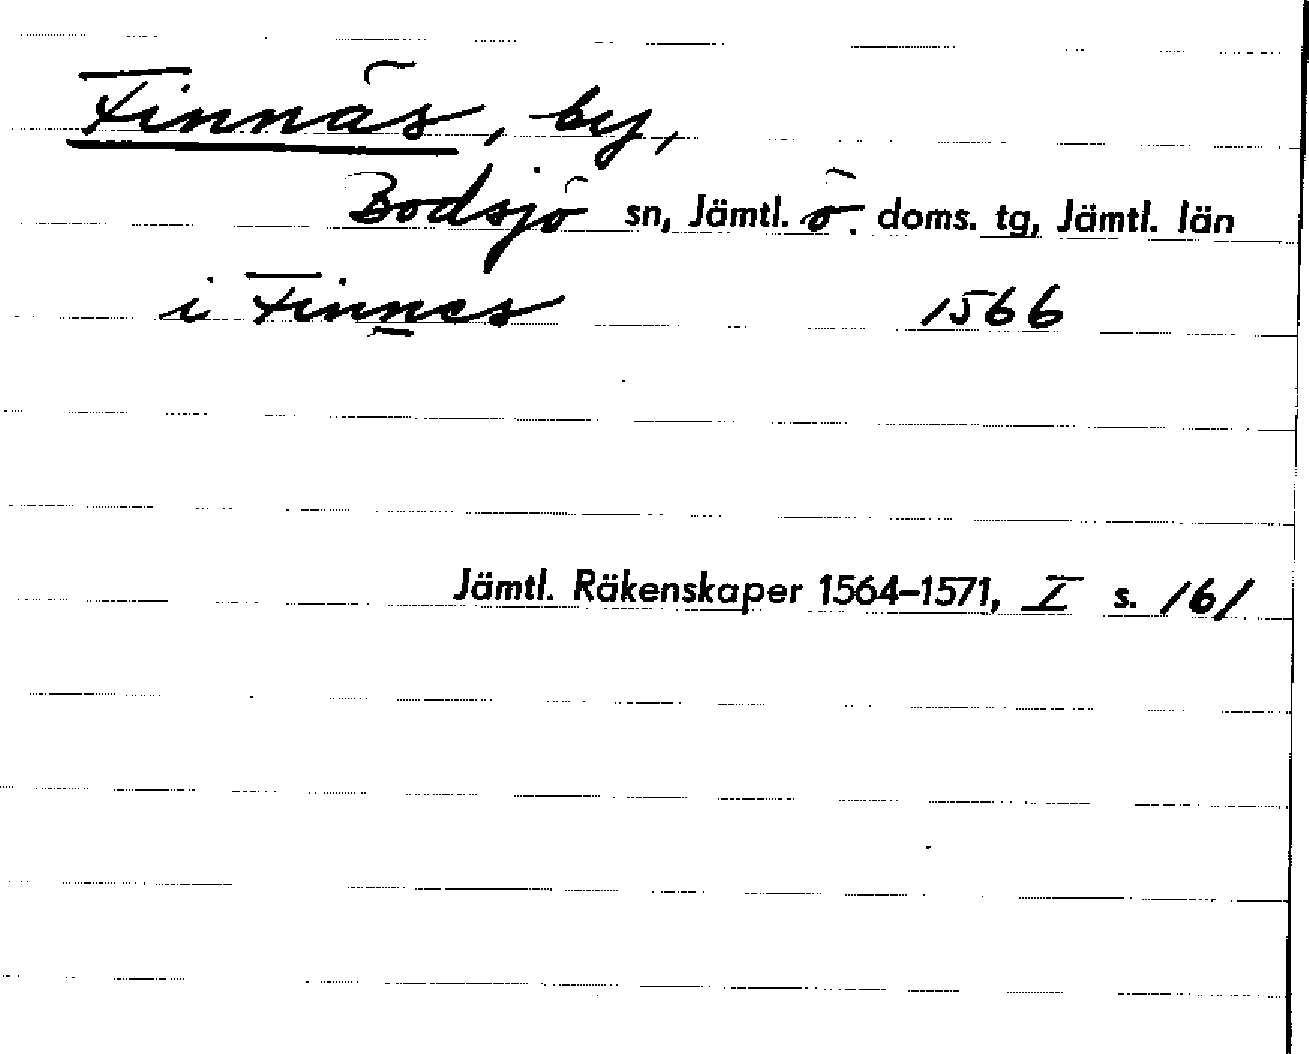 Finnäs, by,
Bodsjö sn, Jämtl. ö. doms. tg, Jämtl. län
i Finnes 1566
Jämtl. Räkenskaper 1564–1571, I s. 161